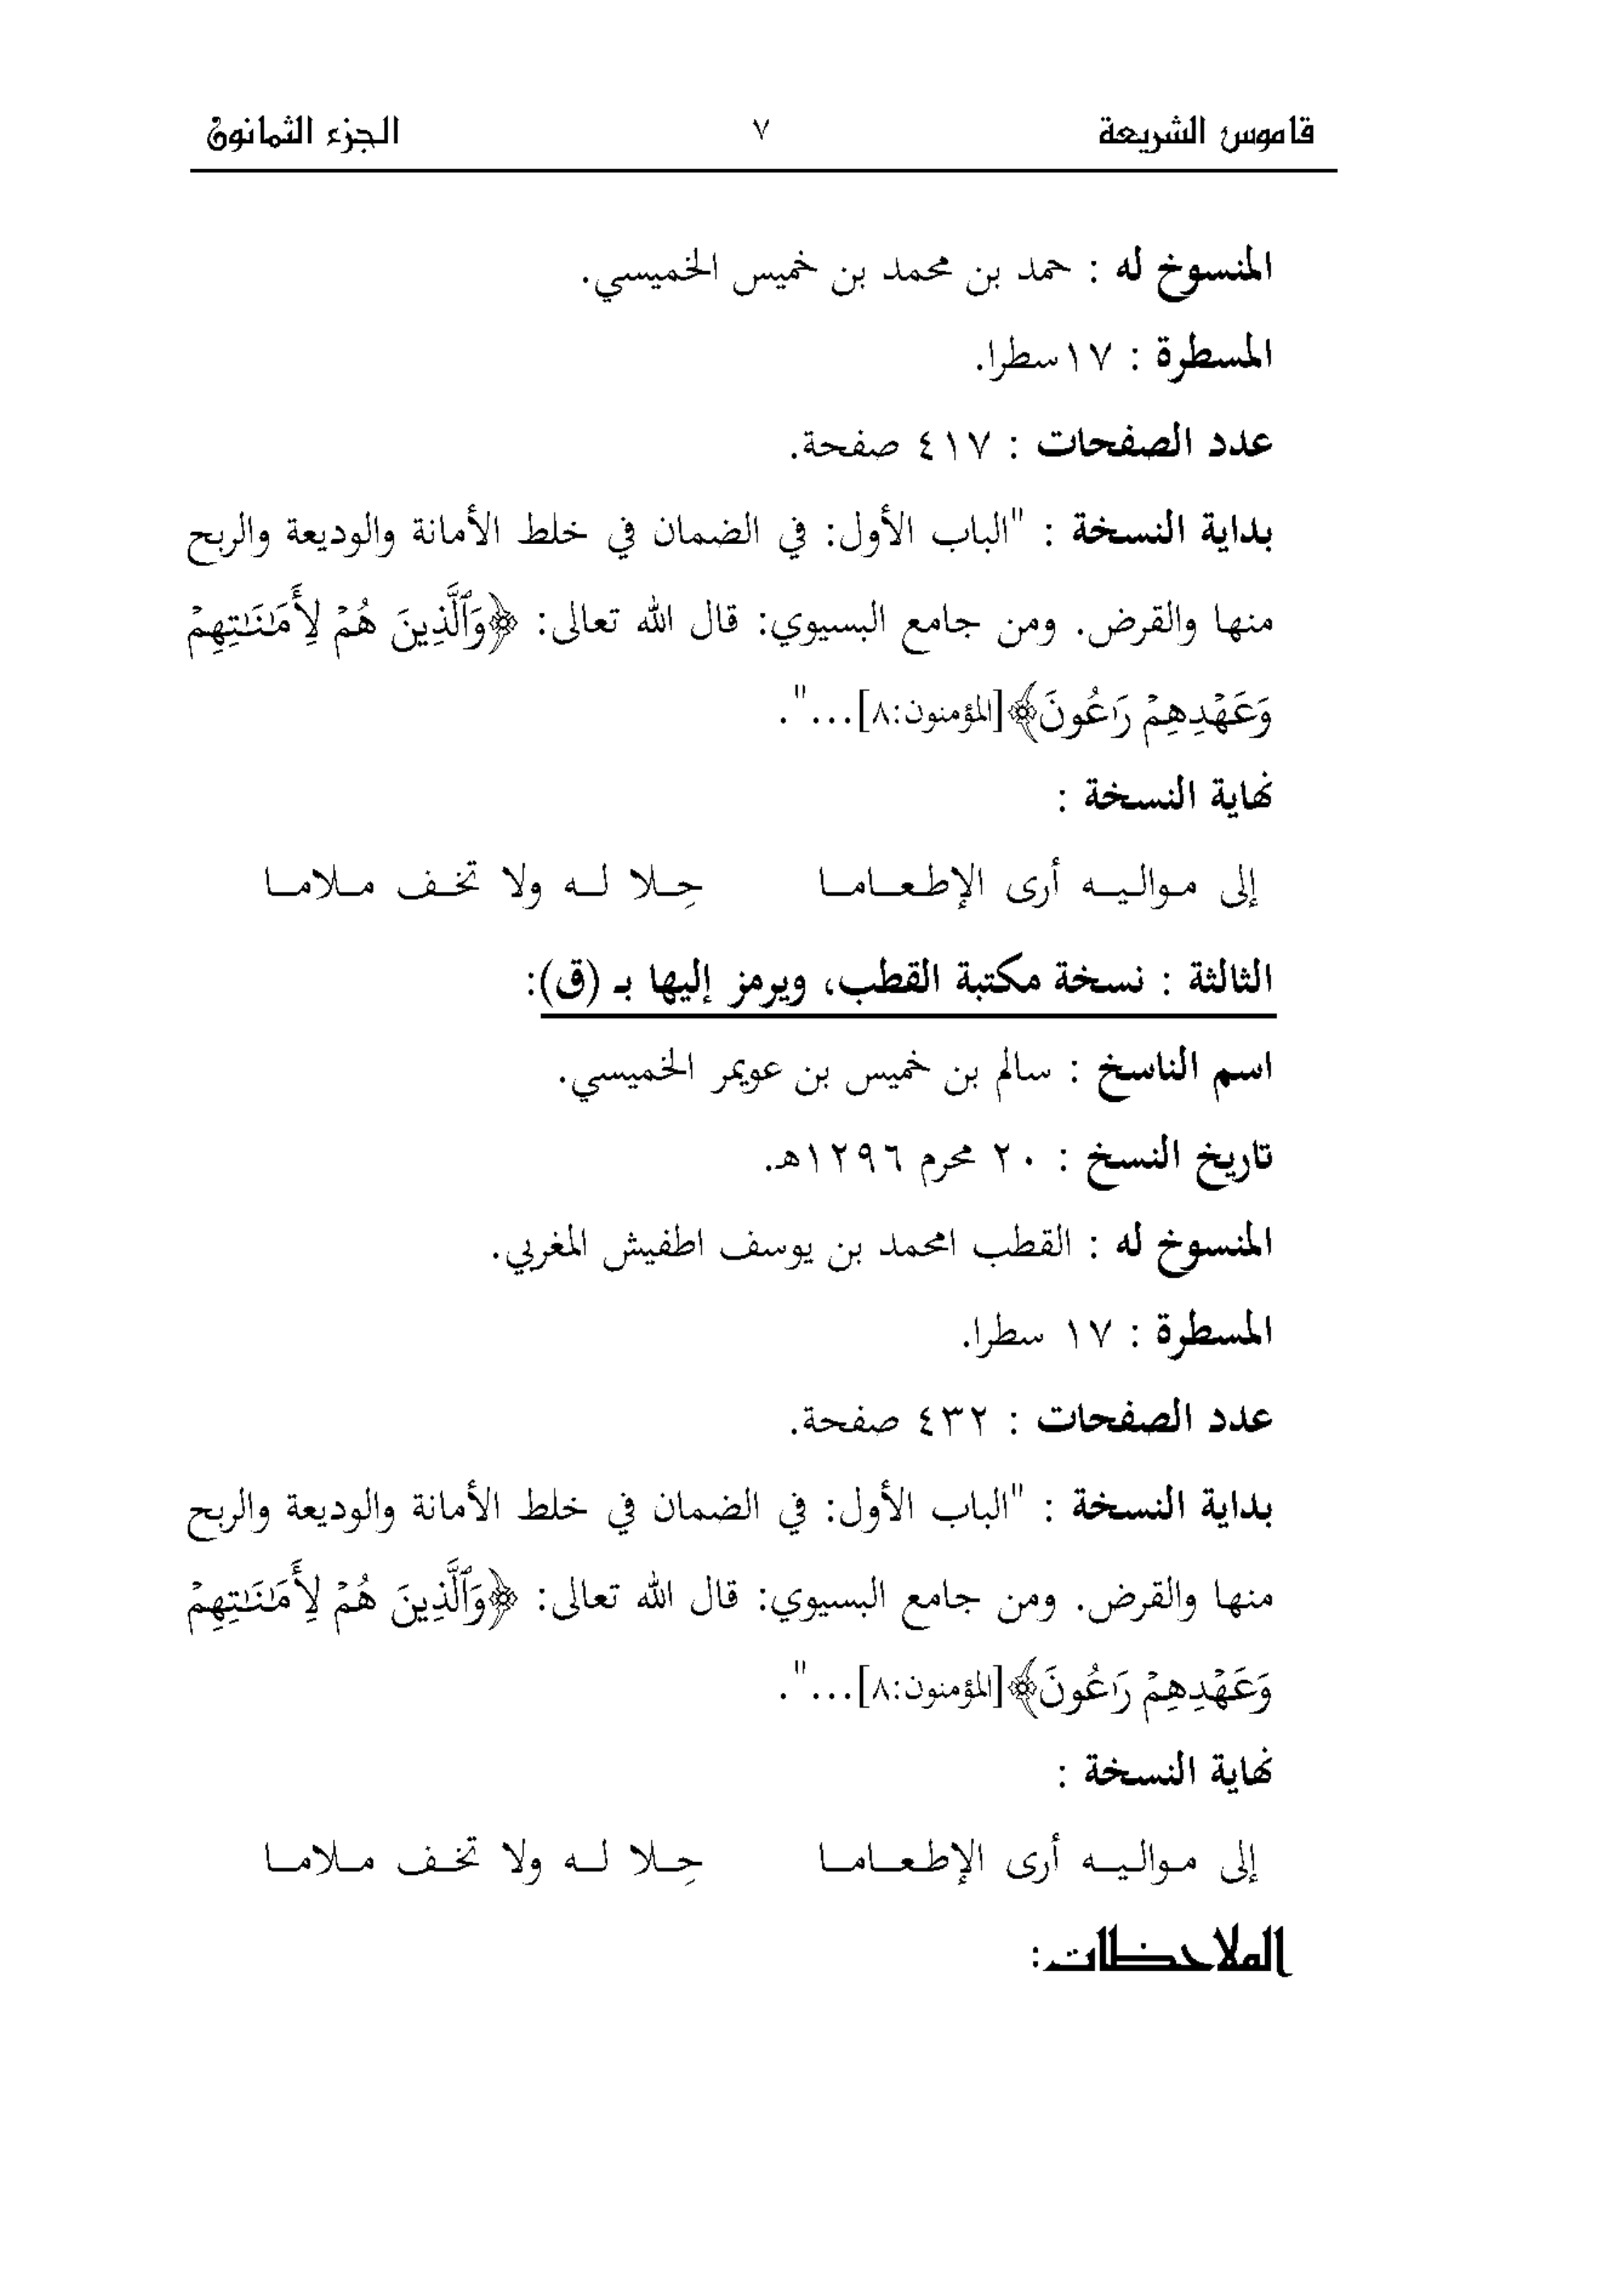 قاموس الشريعة ٧ الجزء الثمانون
المنسوخ له : حمد بن محمد بن خميس الخميسي.
المسطرة : ١٧سطرا.
عدد الصفحات : ٤١٧ صفحة.
بداية النسخة : "الباب الأول: في الضمان في خلط الأمانة والوديعة والربح
منها والقرض. ومن جامع البسيوي: قال الله تعالى: ﴿وَٱلَّذِينَ هُمۡ لِأَمَٰنَٰتِهِمۡ
وَعَهۡدِهِمۡ رَٰعُونَ﴾[المؤمنون:٨]...".
نهاية النسخة :
إلى مـواليـــه أرى الإطـعـــامـــا حِـــلا لـــه ولا تخـــف مـــلامـــا
الثالثة : نسخة مكتبة القطب، ويرمز إليها بـ (ق):
اسم الناسخ : سالم بن خميس بن عويمر الخميسي.
تاريخ النسخ : ٢٠ محرم ١٢٩٦هـ.
المنسوخ له : القطب امحمد بن يوسف اطفيش المغربي.
المسطرة : ١٧ سطرا.
عدد الصفحات : ٤٣٢ صفحة.
بداية النسخة : "الباب الأول: في الضمان في خلط الأمانة والوديعة والربح
منها والقرض. ومن جامع البسيوي: قال الله تعالى: ﴿وَٱلَّذِينَ هُمۡ لِأَمَٰنَٰتِهِمۡ
وَعَهۡدِهِمۡ رَٰعُونَ﴾[المؤمنون:٨]...".
نهاية النسخة :
إلى مـواليـــه أرى الإطـعـــامـــا حِـــلا لـــه ولا تخـــف مـــلامـــا
الملاحظات: